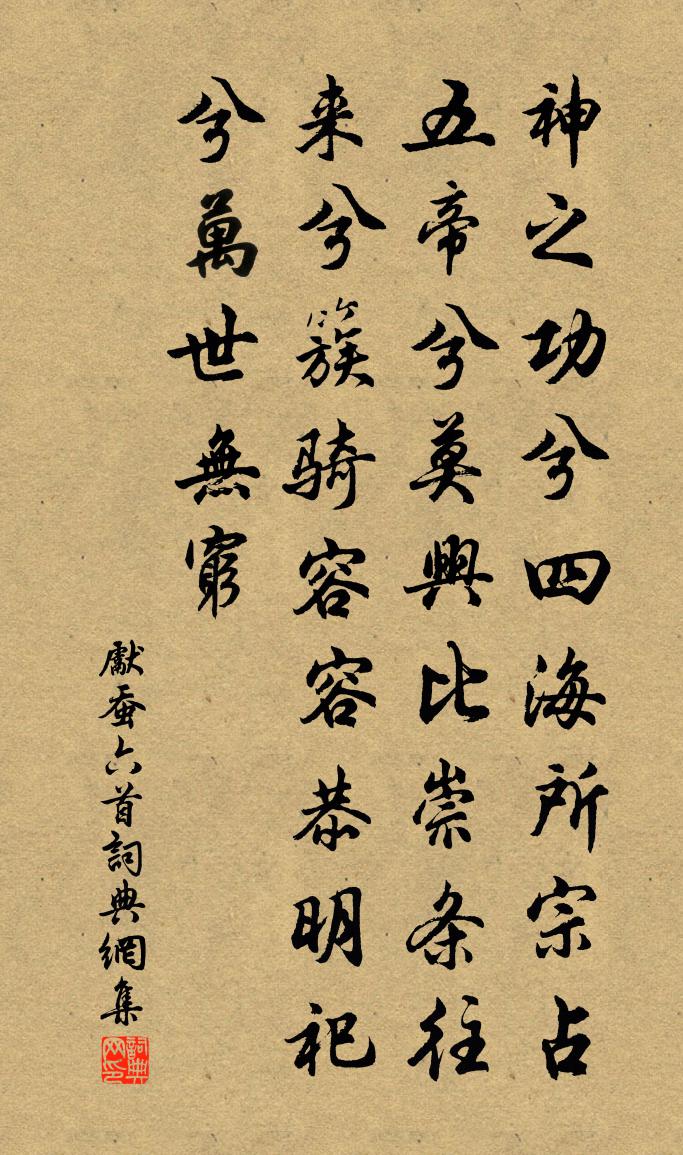 神之功兮四海所宗占
五帝兮莫與比崇条往
来兮簇骑容容恭明祀
兮萬世無窮
獻蚕六首詞典網集
詞典网印